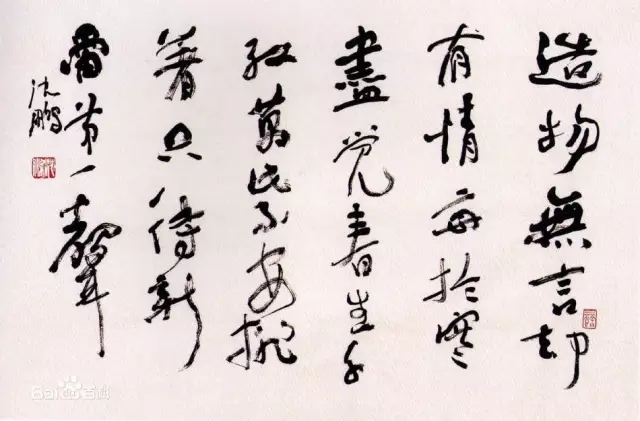 造物無言却
有情每於寒
盡觉春生千
红萬紫安排
著只待新
雷第一聲
沈鹏
Bai百科